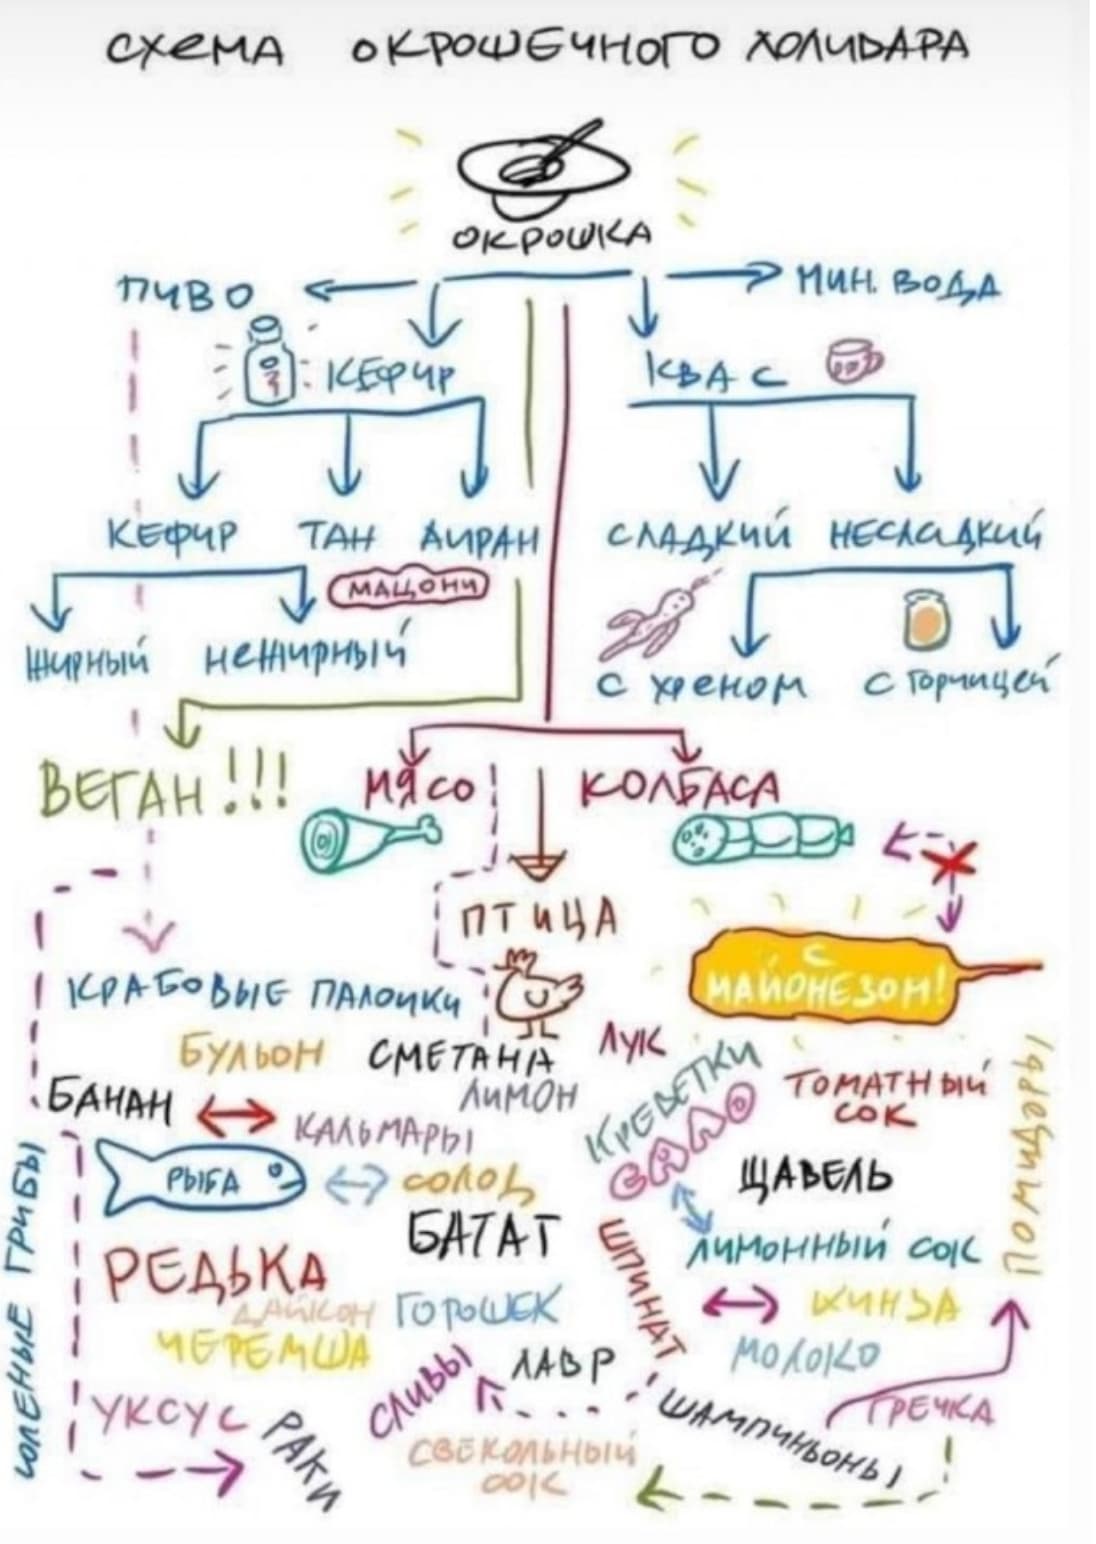 СХЕМА ОКРОШЕЧНОГО ХОЛИВАРА
ОКРОШКА
ПИВО
МИН. ВОДА
КЕФИР
КВАС
КЕФИР ТАН АЙРАН
СЛАДКИЙ НЕСЛАДКИЙ
МАЦОНИ
ЖИРНЫЙ НЕЖИРНЫЙ
С ХРЕНОМ С ГОРЧИЦЕЙ
ВЕГАН!!!
МЯСО
КОЛБАСА
ПТИЦА
С
МАЙОНЕЗОМ!
КРАБОВЫЕ ПАЛОЧКИ
БУЛЬОН
СМЕТАНА
ЛУК
КРЕВЕТКИ
ТОМАТНЫЙ
СОК
ПОМИДОРЫ
БАНАН
ЛИМОН
САЛО
КАЛЬМАРЫ
РЫБА
СОЛОД
ЩАВЕЛЬ
СОЛЕНЫЕ ГРИБЫ
БАТАТ
ШПИНАТ
ЛИМОННЫЙ СОК
РЕДЬКА
ДАЙКОН
ГОРОШЕК
КИНЗА
ЧЕРЕМША
СЛИВЫ
ЛАВР
МОЛОКО
УКСУС
РАКИ
ШАМПИНЬОНЫ
ГРЕЧКА
СВЕКОЛЬНЫЙ
СОК